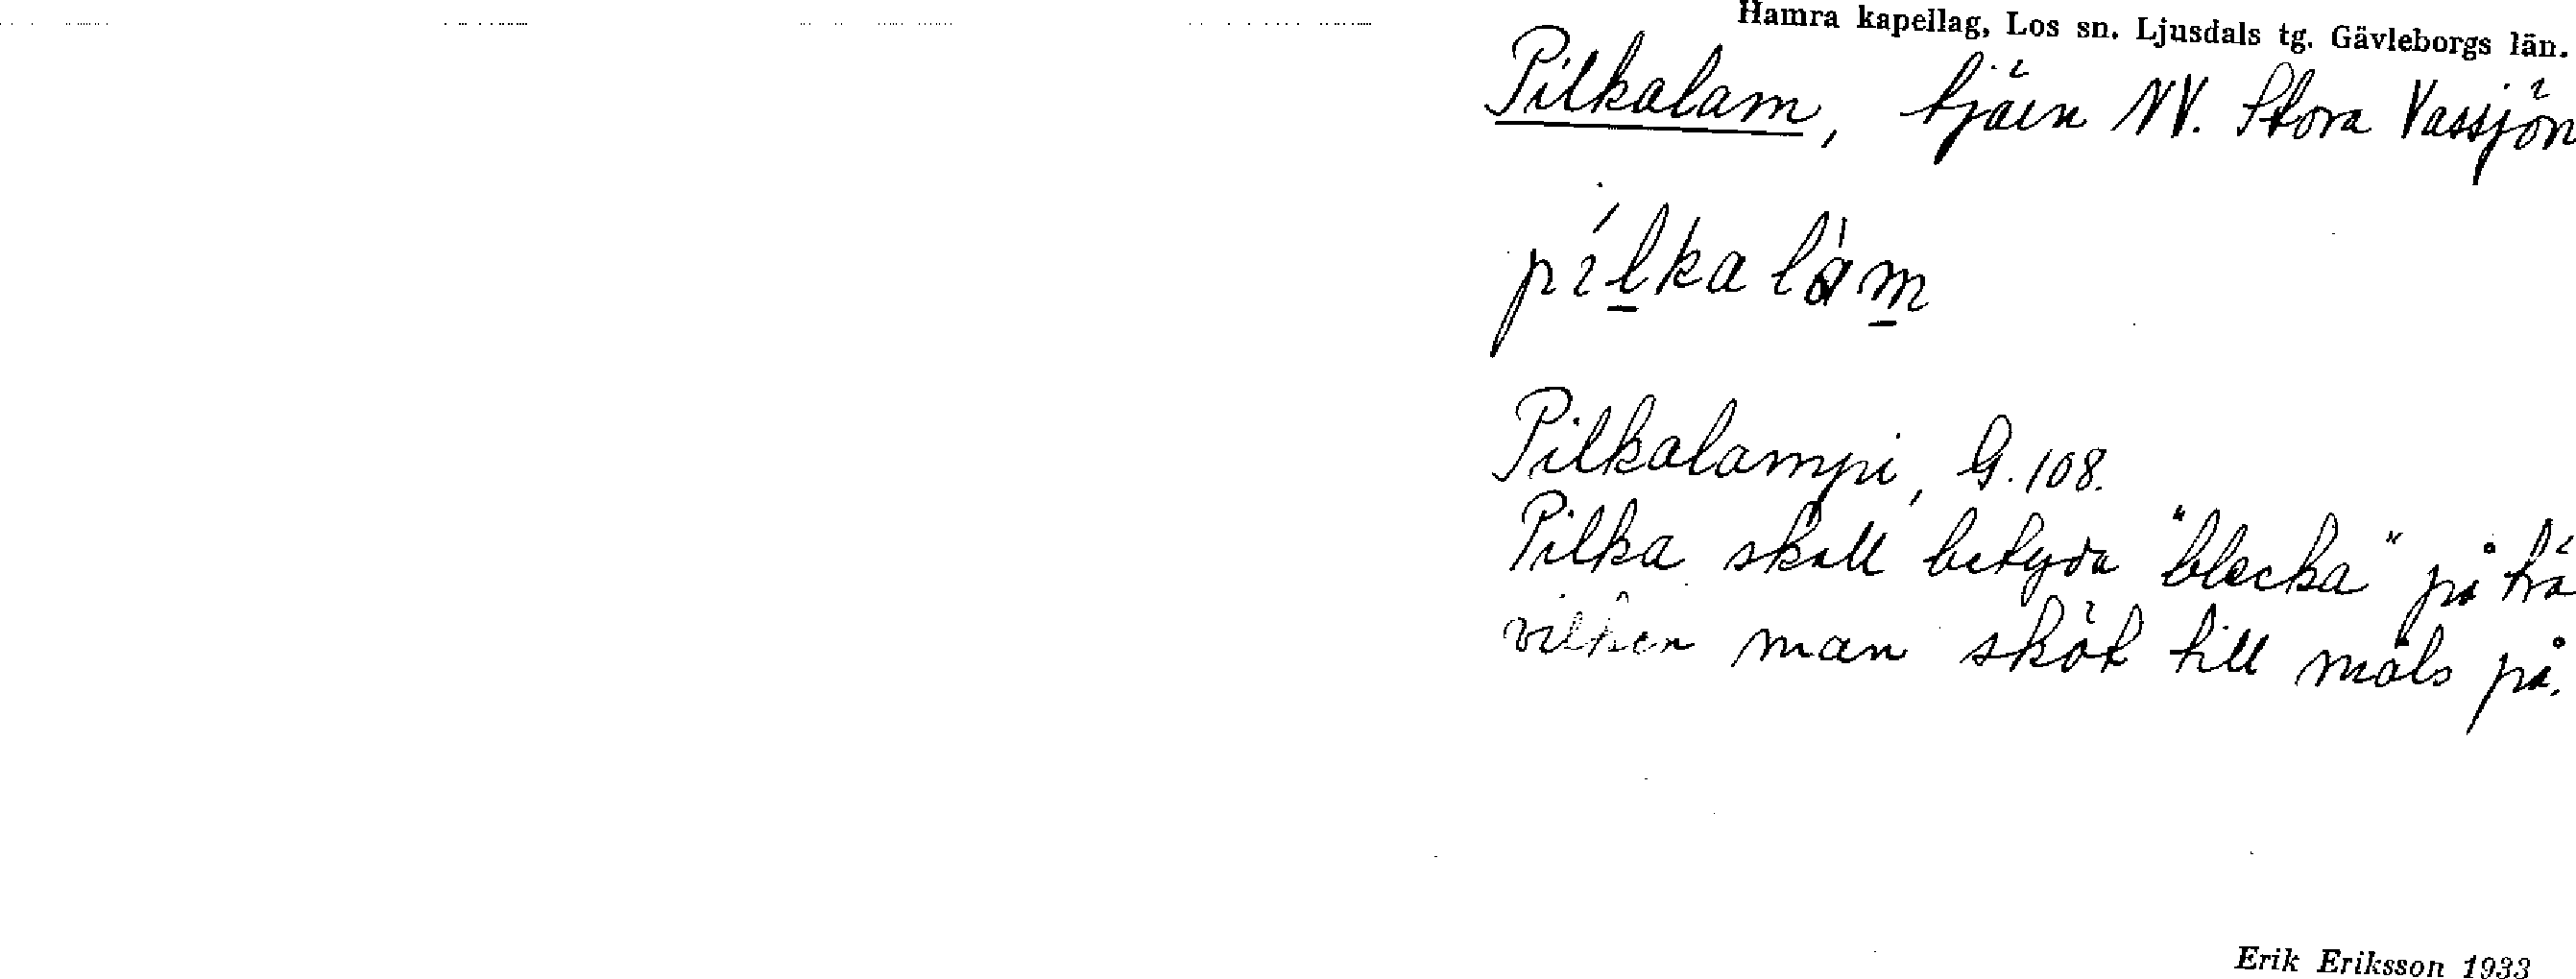 Hamra kapellag, Los sn. Ljusdals tg. Gävleborgs län.
Pilkalam, tjärn NV. Stora Vassjön
pílkalàm
Pilkalampi, G. 108.
Pilka skall betyda "blecka" på trä
vilken man sköt till måls på.
Erik Eriksson 1933